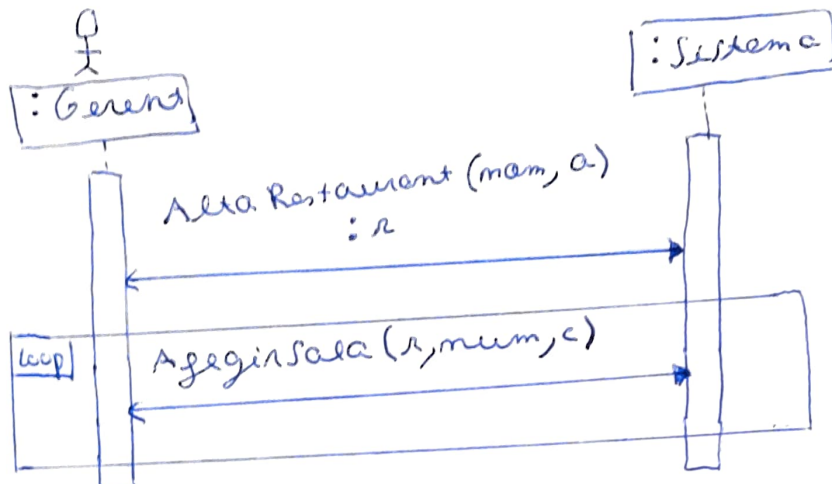 : Gerent
: Sistema
Alta Restaurant (nom, a)
: r
loop
AfegirSala (r, num, c)